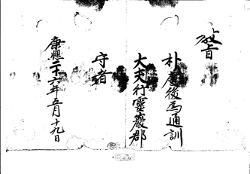 敎旨
朴厚爲通訓
大夫行靈巖郡
守者
康熙二十六年五月十九日